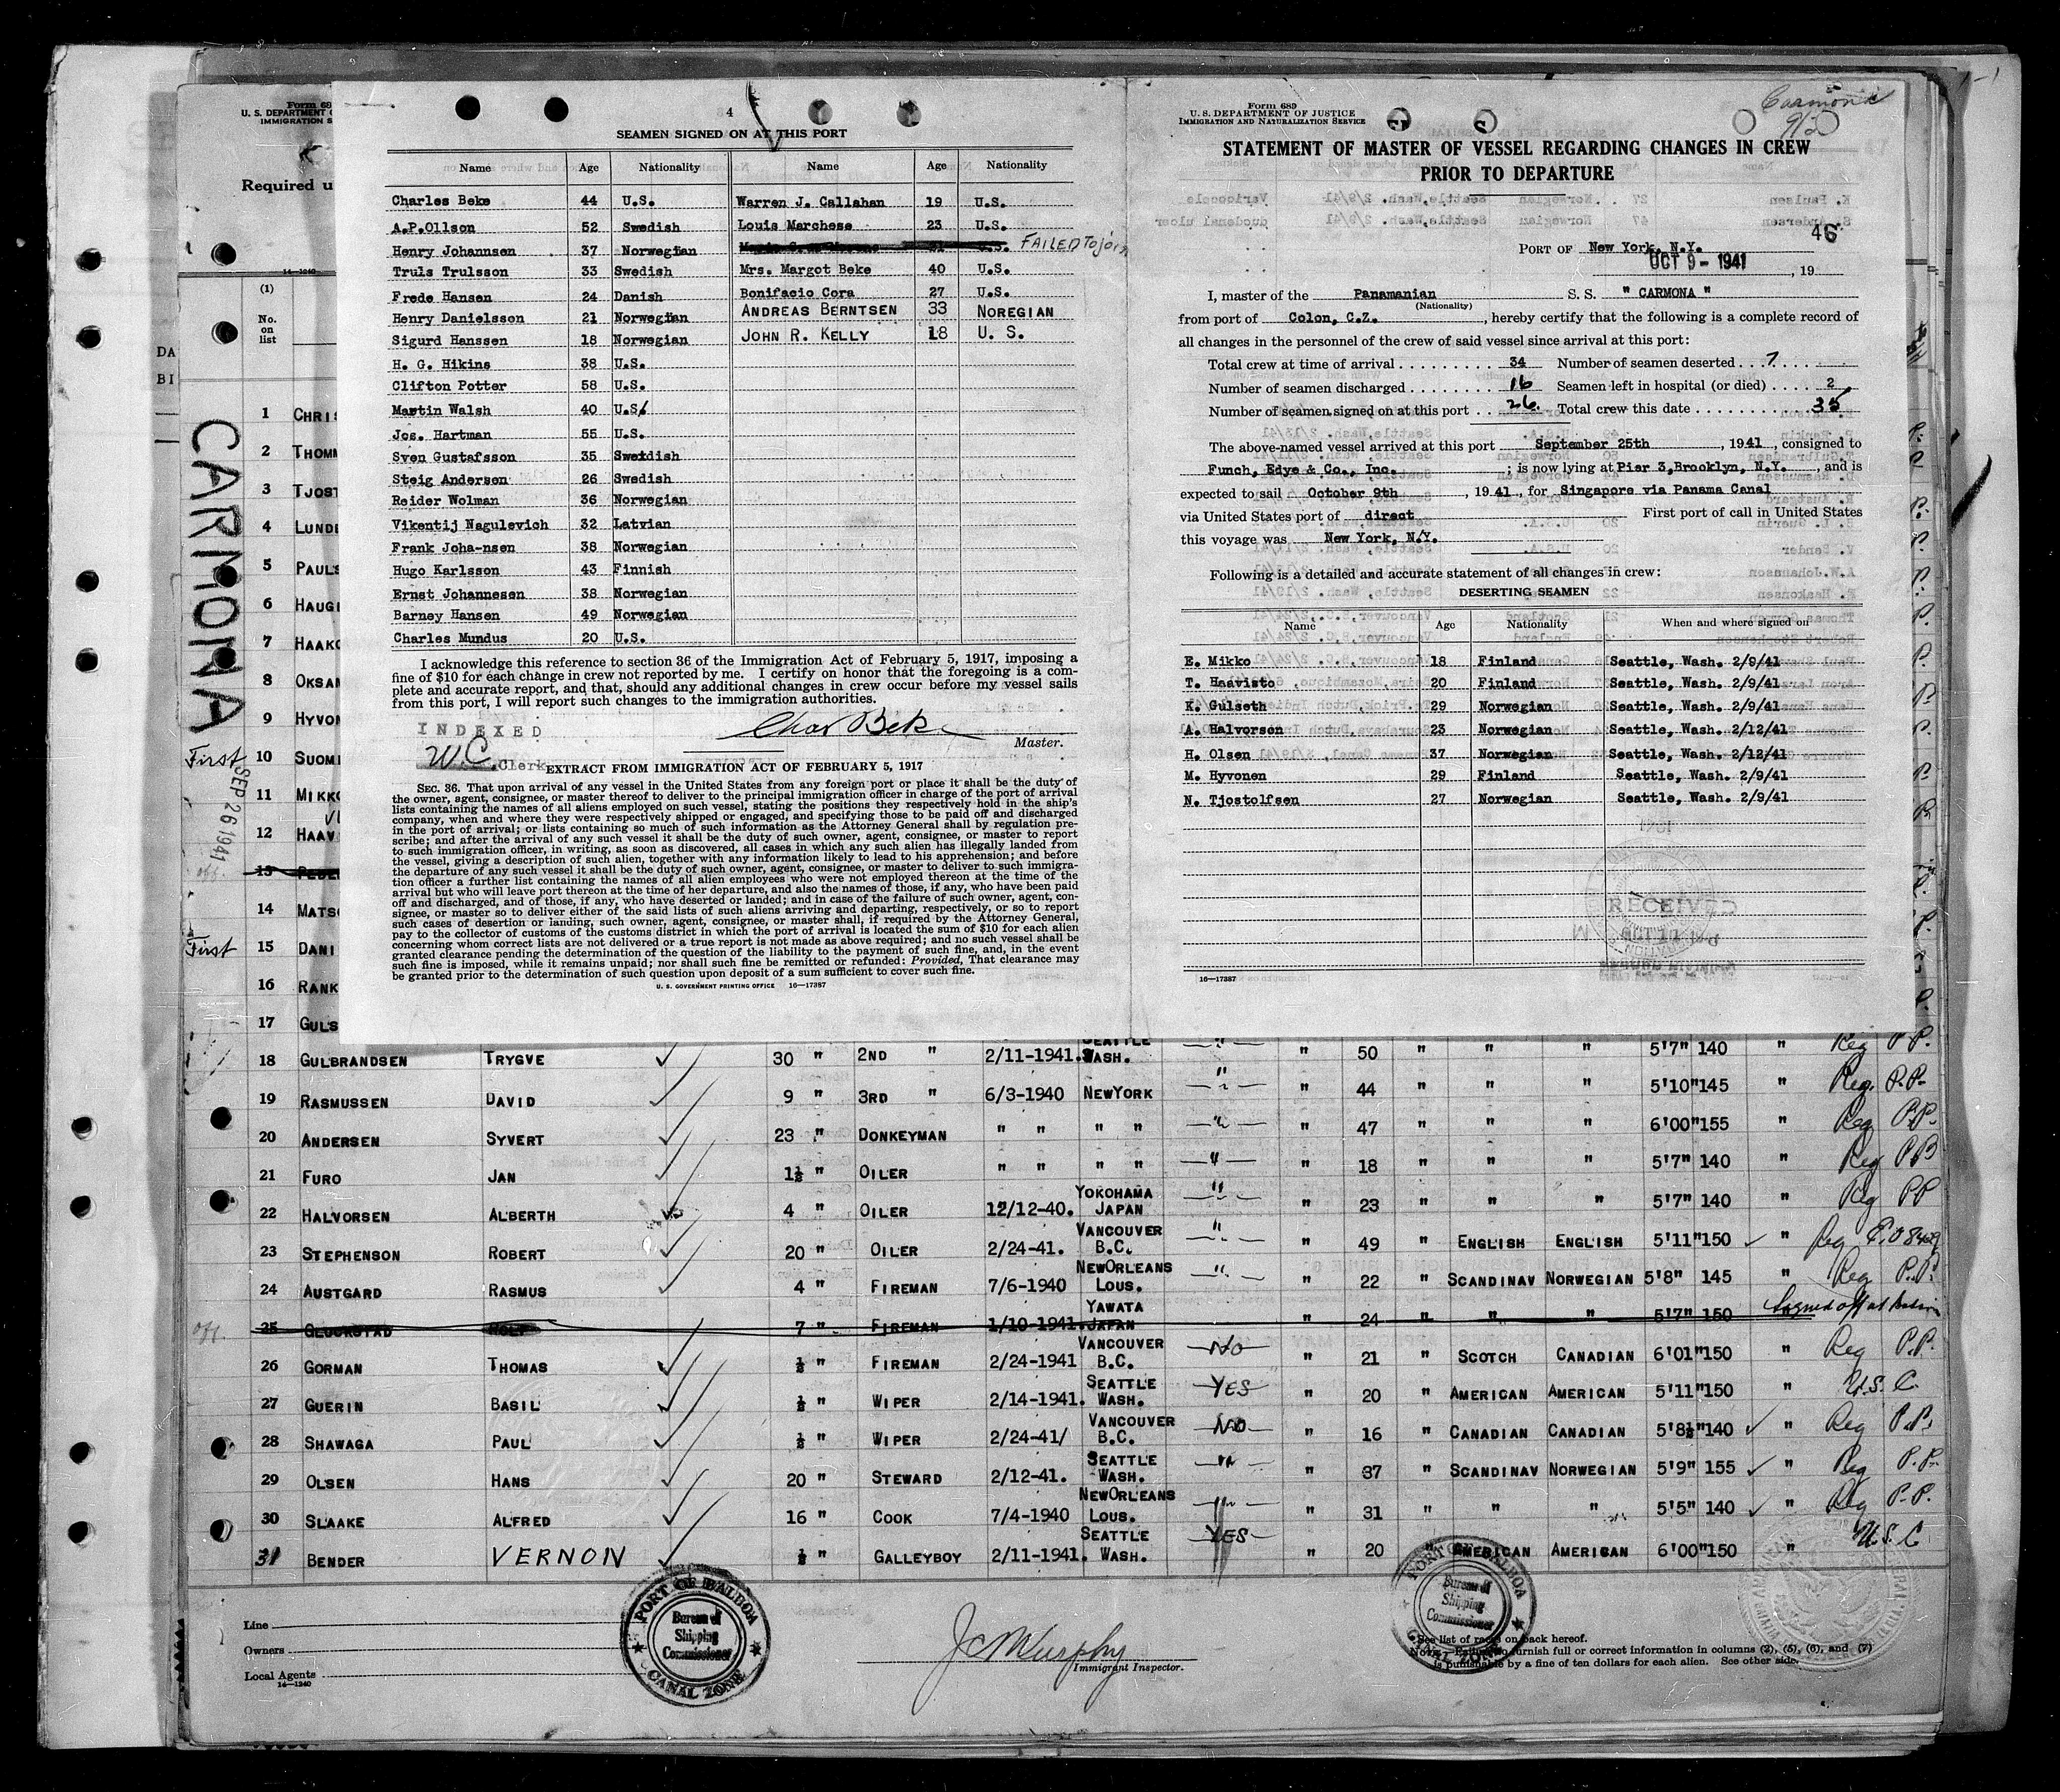 4
SEAMEN SIGNED ON AT THIS PORT
Name Age Nationality Name Age Nationality
Charles Beke 44 U.S. Warren J. Callahan 19 U.S.
A.P.Ollson 52 Swedish Louis Marchese 23 U.S.
Henry Johannsen 37 Norwegian U.S. FAILED To join
Truls Trulsson 33 Swedish Mrs. Margot Beke 40 U.S.
Frede Hansen 24 Danish Bonifacio Cora 27 U.S.
Henry Danielsson 21 Norwegian ANDREAS BERNTSEN 33 NOREGIAN
Sigurd Hanssen 18 Norwegian JOHN R. KELLY 18 U. S.
H. G. Hikins 38 U.S.
Clifton Potter 58 U.S.
Martin Walsh 40 U.S.
Jos. Hartman 55 U.S.
Sven Gustafsson 35 Swedish
Steig Andersen 26 Swedish
Reider Wolman 36 Norwegian
Vikentij Nagulevich 32 Latvian
Frank Joha-nsen 38 Norwegian
Hugo Karlsson 43 Finnish
Ernst Johannesen 38 Norwegian
Barney Hansen 49 Norwegian
Charles Mundus 20 U.S.
I acknowledge this reference to section 36 of the Immigration Act of February 5, 1917, imposing a
fine of $10 for each change in crew not reported by me. I certify on honor that the foregoing is a com-
plete and accurate report, and that, should any additional changes in crew occur before my vessel sails
from this port, I will report such changes to the immigration authorities.
INDEXED
Chas Beke
Master.
W.C. Clerk
EXTRACT FROM IMMIGRATION ACT OF FEBRUARY 5, 1917
SEC. 36. That upon arrival of any vessel in the United States from any foreign port or place it shall be the duty of
the owner, agent, consignee, or master thereof to deliver to the principal immigration officer in charge of the port of arrival
lists containing the names of all aliens employed on such vessel, stating the positions they respectively hold in the ship's
company, when and where they were respectively shipped or engaged, and specifying those to be paid off and discharged
in the port of arrival; or lists containing so much of such information as the Attorney General shall by regulation pre-
scribe; and after the arrival of any such vessel it shall be the duty of such owner, agent, consignee, or master to report
to such immigration officer, in writing, as soon as discovered, all cases in which any such alien has illegally landed from
the vessel, giving a description of such alien, together with any information likely to lead to his apprehension; and before
the departure of any such vessel it shall be the duty of such owner, agent, consignee, or master to deliver to such immigra-
tion officer a further list containing the names of all alien employees who were not employed thereon at the time of the
arrival but who will leave port thereon at the time of her departure, and also the names of those, if any, who have been paid
off and discharged, and of those, if any, who have deserted or landed; and in case of the failure of such owner, agent, con-
signee, or master so to deliver either of the said lists of such aliens arriving and departing, respectively, or so to report
such cases of desertion or landing, such owner, agent, consignee, or master shall, if required by the Attorney General,
pay to the collector of customs of the customs district in which the port of arrival is located the sum of $10 for each alien
concerning whom correct lists are not delivered or a true report is not made as above required; and no such vessel shall be
granted clearance pending the determination of the question of the liability to the payment of such fine, and, in the event
such fine is imposed, while it remains unpaid; nor shall such fine be remitted or refunded: Provided, That clearance may
be granted prior to the determination of such question upon deposit of a sum sufficient to cover such fine.
U. S. GOVERNMENT PRINTING OFFICE 16—17387
Form 689
U. S. DEPARTMENT OF JUSTICE
IMMIGRATION AND NATURALIZATION SERVICE
Carmona
STATEMENT OF MASTER OF VESSEL REGARDING CHANGES IN CREW
PRIOR TO DEPARTURE
46
PORT OF New York, N.Y.
OCT 9 - 1941, 19
I, master of the Panamanian S. S. " CARMONA "
(Nationality)
from port of Colon, C.Z., hereby certify that the following is a complete record of
all changes in the personnel of the crew of said vessel since arrival at this port:
Total crew at time of arrival 34 Number of seamen deserted 7
Number of seamen discharged 16 Seamen left in hospital (or died) 2
Number of seamen signed on at this port 26 Total crew this date 35
The above-named vessel arrived at this port September 25th, 1941, consigned to
Funch, Edye & Co., Inc.; is now lying at Pier 3,Brooklyn, N.Y., and is
expected to sail October 9th, 1941, for Singapore via Panama Canal
via United States port of direct First port of call in United States
this voyage was New York, N.Y.
Following is a detailed and accurate statement of all changes in crew:
DESERTING SEAMEN
Name Age Nationality When and where signed on
E. Mikko 18 Finland Seattle, Wash. 2/9/41
T. Haavisto 20 Finland Seattle, Wash. 2/9/41
K. Gulseth 29 Norwegian Seattle, Wash. 2/9/41
A. Halvorson 23 Norwegian Seattle, Wash. 2/12/41
H. Olsen 37 Norwegian Seattle, Wash. 2/12/41
M. Hyvonen 29 Finland Seattle, Wash. 2/9/41
N. Tjostolfsen 27 Norwegian Seattle, Wash. 2/9/41
RECEIVED
16—17387
Form 68
U. S. DEPARTMENT
IMMIGRATION S
Required u
14—1240
(1)
No.
on
list
CARMONA
SEP 26 1941
1 CHRIS
2 THOMM
3 TJOST
4 LUNDE
5 PAULS
6 HAUGE
7 HAAKO
8 OKSAN
9 HYVON
First 10 SUOMI
11 MIKKO
12 HAAV
13 PEDE
14 MATS
First 15 DANI
16 RANK
17 GULS
18 GULBRANDSEN TRYGVE 30 " 2ND " 2/11-1941. SEATTLE WASH. " " 50 " " " 5'7" 140 " Reg P.P.
19 RASMUSSEN DAVID 9 " 3RD " 6/3-1940 NEWYORK " " 44 " " " 5'10" 145 " Reg. P.P.
20 ANDERSEN SYVERT 23 " DONKEYMAN " " " " " " 47 " " " 6'00" 155 " Reg P.P.
21 FURO JAN 1½ " OILER " " " " " " 18 " " " 5'7" 140 " Reg PP
22 HALVORSEN ALBERTH 4 " OILER 12/12-40. YOKOHAMA JAPAN " " 23 " " " 5'7" 140 " Reg PP
23 STEPHENSON ROBERT 20 " OILER 2/24-41. VANCOUVER B.C. " " 49 " ENGLISH ENGLISH 5'11" 150 " Reg
24 AUSTGARD RASMUS 4 " FIREMAN 7/6-1940 NEWORLEANS LOUS. " " 22 " SCANDINAV NORWEGIAN 5'8" 145 " Reg P.P.
25 GLUCKSTAD ROLF 7 " FIREMAN 1/10-1941. YAWATA JAPAN " 24 " " " 5'7" 150 Signed off at
26 GORMAN THOMAS ½ " FIREMAN 2/24-1941 VANCOUVER B.C. NO " 21 " SCOTCH CANADIAN 6'01" 150 " Reg P.P.
27 GUERIN BASIL ½ " WIPER 2/14-1941. SEATTLE WASH. YES " 20 " AMERICAN AMERICAN 5'11" 150 " U.S. C.
28 SHAWAGA PAUL ½ " WIPER 2/24-41/ VANCOUVER B.C. NO " 16 " CANADIAN CANADIAN 5'8½" 140 " Reg P.P.
29 OLSEN HANS 20 " STEWARD 2/12-41. SEATTLE WASH. " " 37 " SCANDINAV NORWEGIAN 5'9" 155 " Reg P.P.
30 SLAAKE ALFRED 16 " COOK 7/4-1940 NEWORLEANS LOUS. " " 31 " " " 5'5" 140 " Reg P.P.
31 BENDER VERNON ½ " GALLEYBOY 2/11-1941. SEATTLE WASH. YES " 20 " AMERICAN AMERICAN 6'00" 150 " U.S.C
Line
Owners
Local Agents
14—1240
PORT OF BALBOA
Bureau of
Shipping
Commissioner
CANAL ZONE
JC Murphy
Immigrant Inspector.
PORT OF BALBOA
Bureau of
Shipping
Commissioner
CANAL ZONE
See list of races on back hereof.
furnish full or correct information in columns (2), (5), (6), and (7)
is punishable by a fine of ten dollars for each alien. See other side.